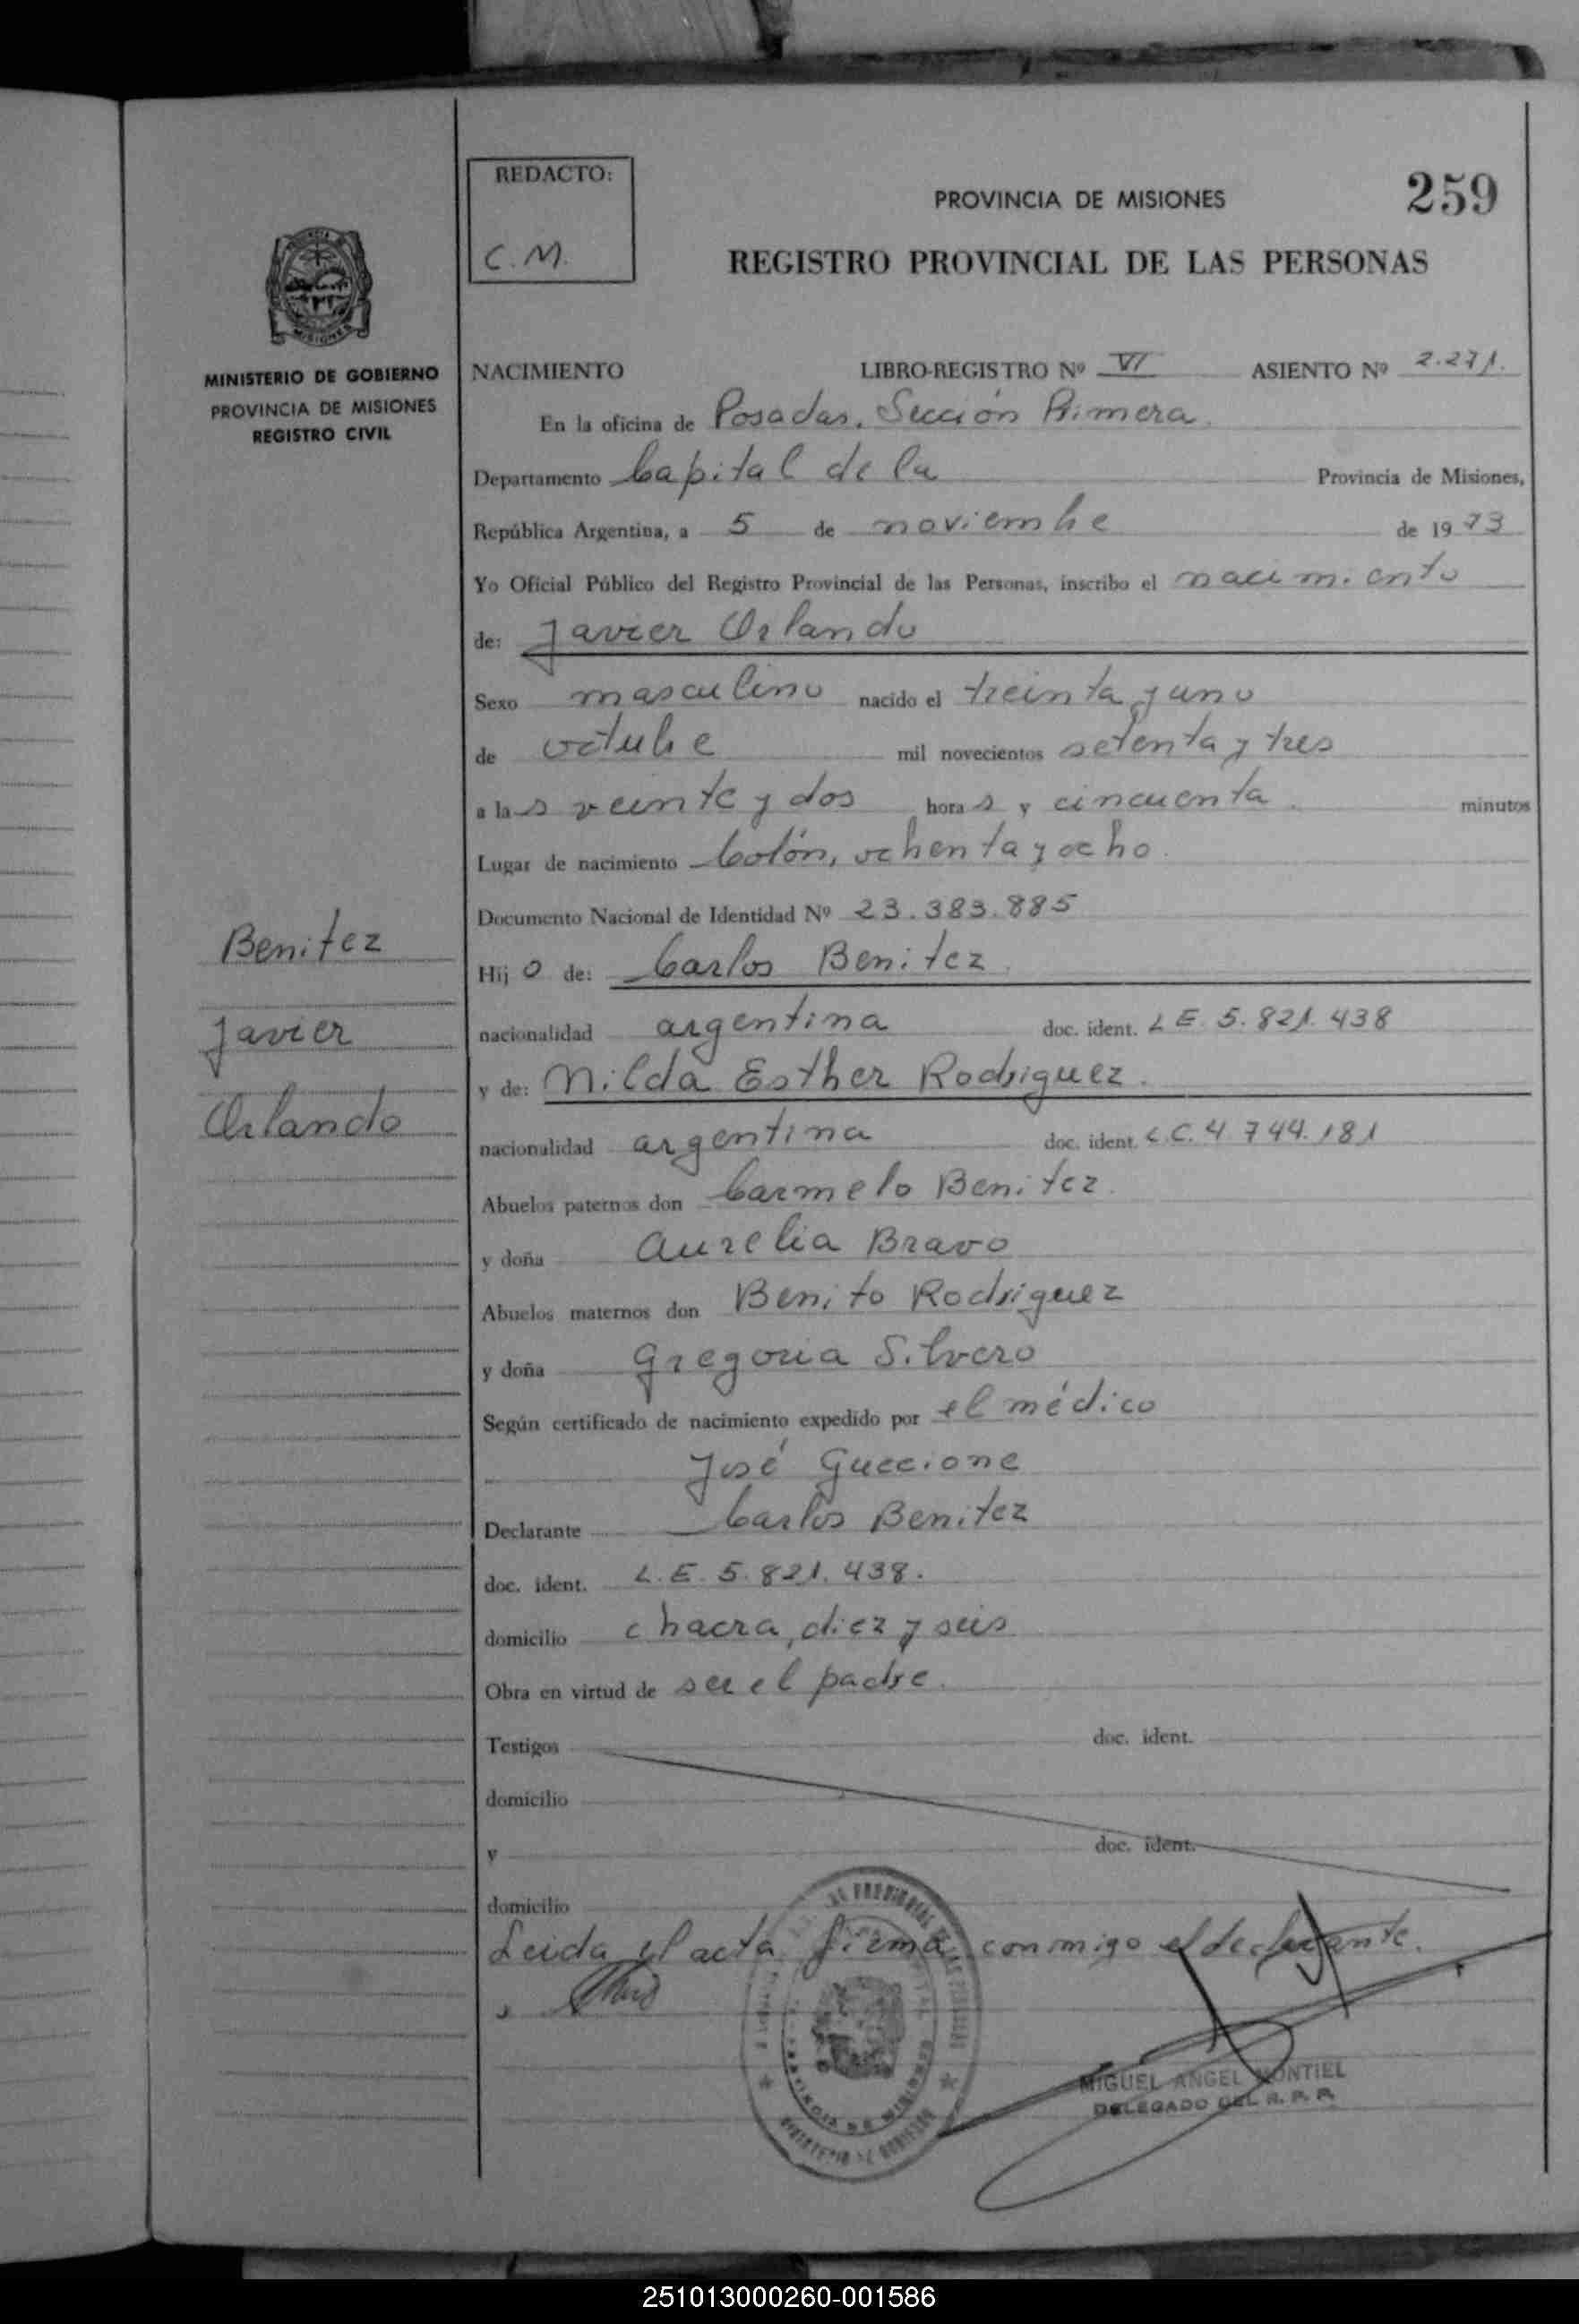 REDACTO:
C. M.
PROVINCIA DE MISIONES
259
REGISTRO PROVINCIAL DE LAS PERSONAS
MINISTERIO DE GOBIERNO
PROVINCIA DE MISIONES
REGISTRO CIVIL
NACIMIENTO LIBRO-REGISTRO Nº VI ASIENTO Nº 2.271.
En la oficina de Posadas, Sección Primera.
Departamento Capital de la Provincia de Misiones,
República Argentina, a 5 de noviembre de 1973
Yo Oficial Público del Registro Provincial de las Personas, inscribo el nacimiento
de: Javier Orlando
Sexo masculino nacido el treinta y uno
de octubre mil novecientos setenta y tres
a las veinte y dos horas y cincuenta. minutos
Lugar de nacimiento Colón, ochenta y ocho.
Documento Nacional de Identidad Nº 23.383.885
Hijo de: Carlos Benitez.
nacionalidad argentina doc. ident. L E. 5.821.438
y de: Nilda Esther Rodriguez.
nacionalidad argentina doc. ident. L.C. 4.744.181
Abuelos paternos don Carmelo Benitez.
y doña Aurelia Bravo
Abuelos maternos don Benito Rodriguez
y doña Gregoria Silvero
Según certificado de nacimiento expedido por el médico
José Guccione
Declarante Carlos Benitez
doc. ident. L.E. 5.821.438.
domicilio chacra, diez y seis
Obra en virtud de ser el padre.
Testigos doc. ident.
domicilio
y doc. ident.
domicilio
Leida el acta firma conmigo el declarante.
Benitez
Javier
Orlando
MIGUEL ANGEL MONTIEL
DELEGADO DEL R. P. P.
251013000260-001586